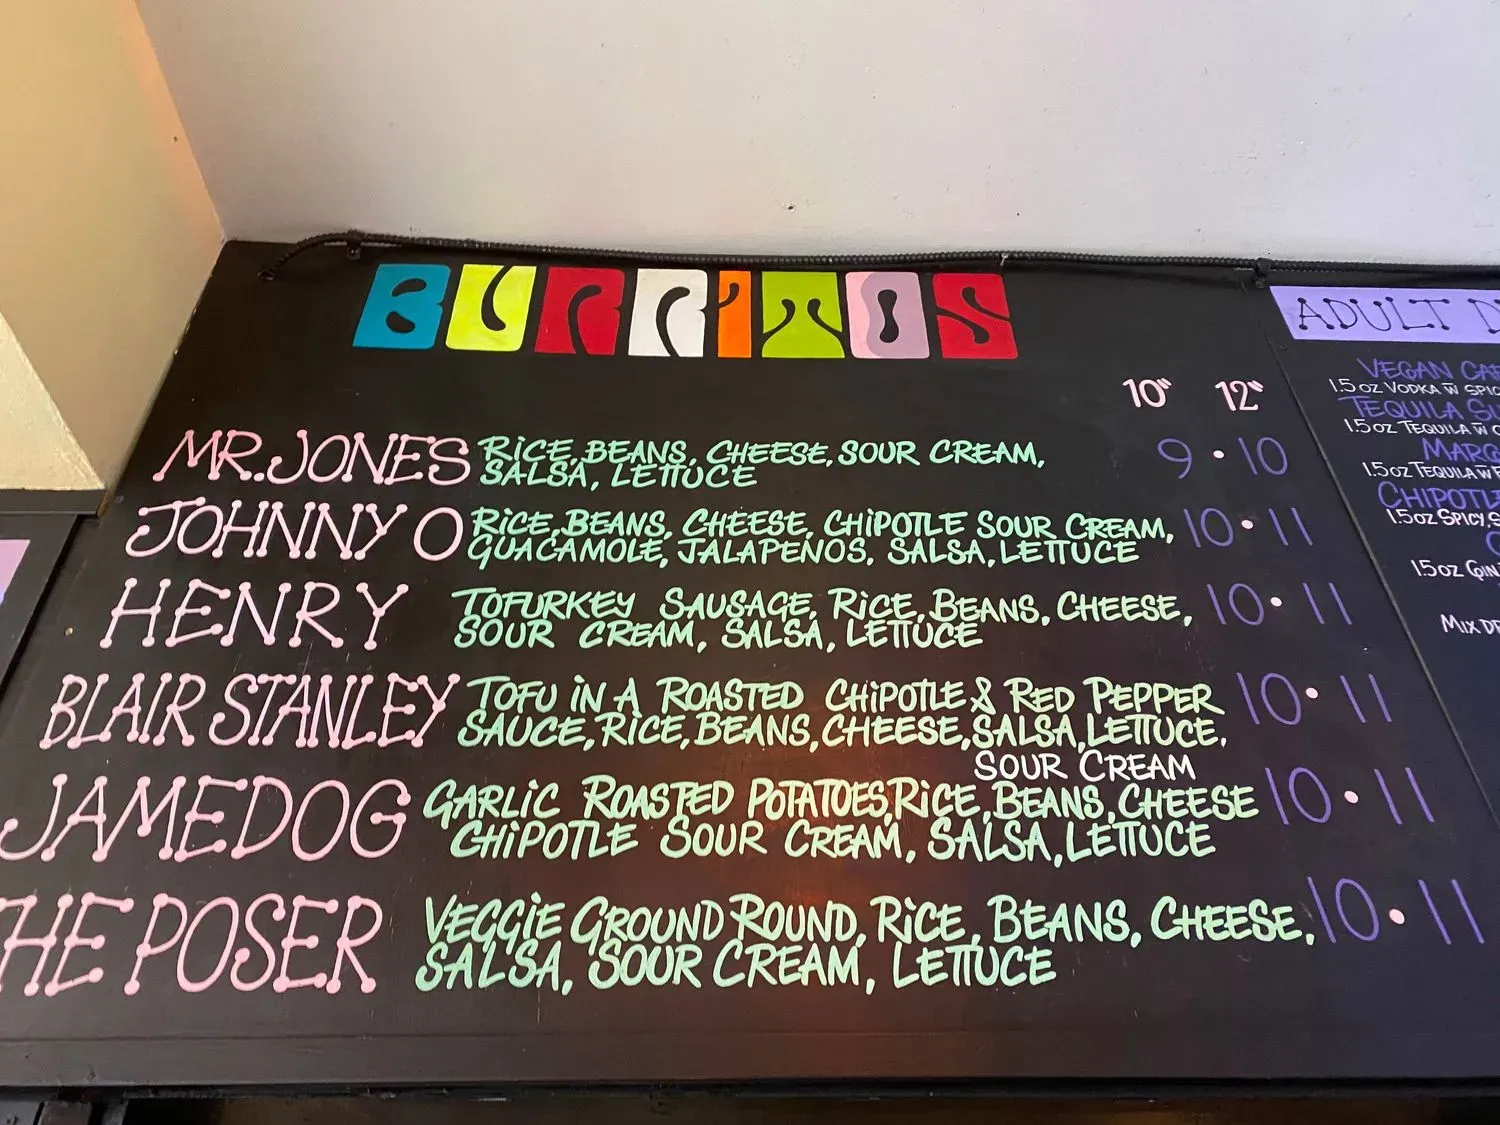 BURRITOS
10" 12"
MR. JONES RICE, BEANS, CHEESE, SOUR CREAM, 9 • 10
SALSA, LETTUCE
JOHNNY O RICE, BEANS, CHEESE, CHIPOTLE SOUR CREAM, 10 • 11
GUACAMOLE, JALAPENOS, SALSA, LETTUCE
HENRY TOFURKEY SAUSAGE, RICE, BEANS, CHEESE, 10 • 11
SOUR CREAM, SALSA, LETTUCE
BLAIR STANLEY TOFU IN A ROASTED CHIPOTLE & RED PEPPER 10 • 11
SAUCE, RICE, BEANS, CHEESE, SALSA, LETTUCE,
SOUR CREAM
JAMEDOG GARLIC ROASTED POTATOES, RICE, BEANS, CHEESE 10 • 11
CHIPOTLE SOUR CREAM, SALSA, LETTUCE
THE POSER VEGGIE GROUND ROUND, RICE, BEANS, CHEESE, 10 • 11
SALSA, SOUR CREAM, LETTUCE
ADULT
VEGAN
1.5 OZ VODKA W
TEQUILA
1.5 OZ TEQUILA W
1.5 OZ TEQUILA W
1.5 OZ SPICY
1.5 OZ
MIX